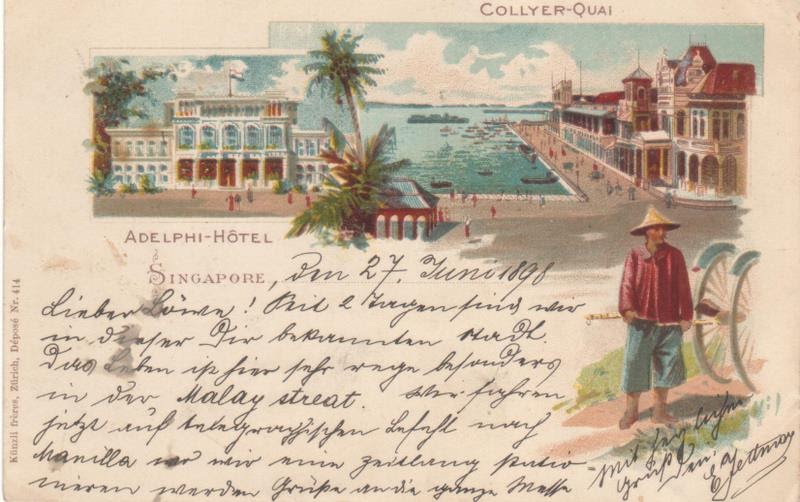 COLLYER-QUAI
ADELPHI-HÔTEL
SINGAPORE, den 27. Juni 1898
Lieber Löwe! Seit 2 Tagen sind wir
in dieser Dir bekannten Stadt.
Das Leben ist hier sehr rege besonders
in der Malay streat. Wir fahren
jetzt auf telegraphischen Befehl nach
Manilla wo wir eine zeitlang statio
nieren werden Grüße an die ganze Messe
Mit herzlichen
Grüßen
E.
Künzli frères, Zürich, Déposé Nr. 414